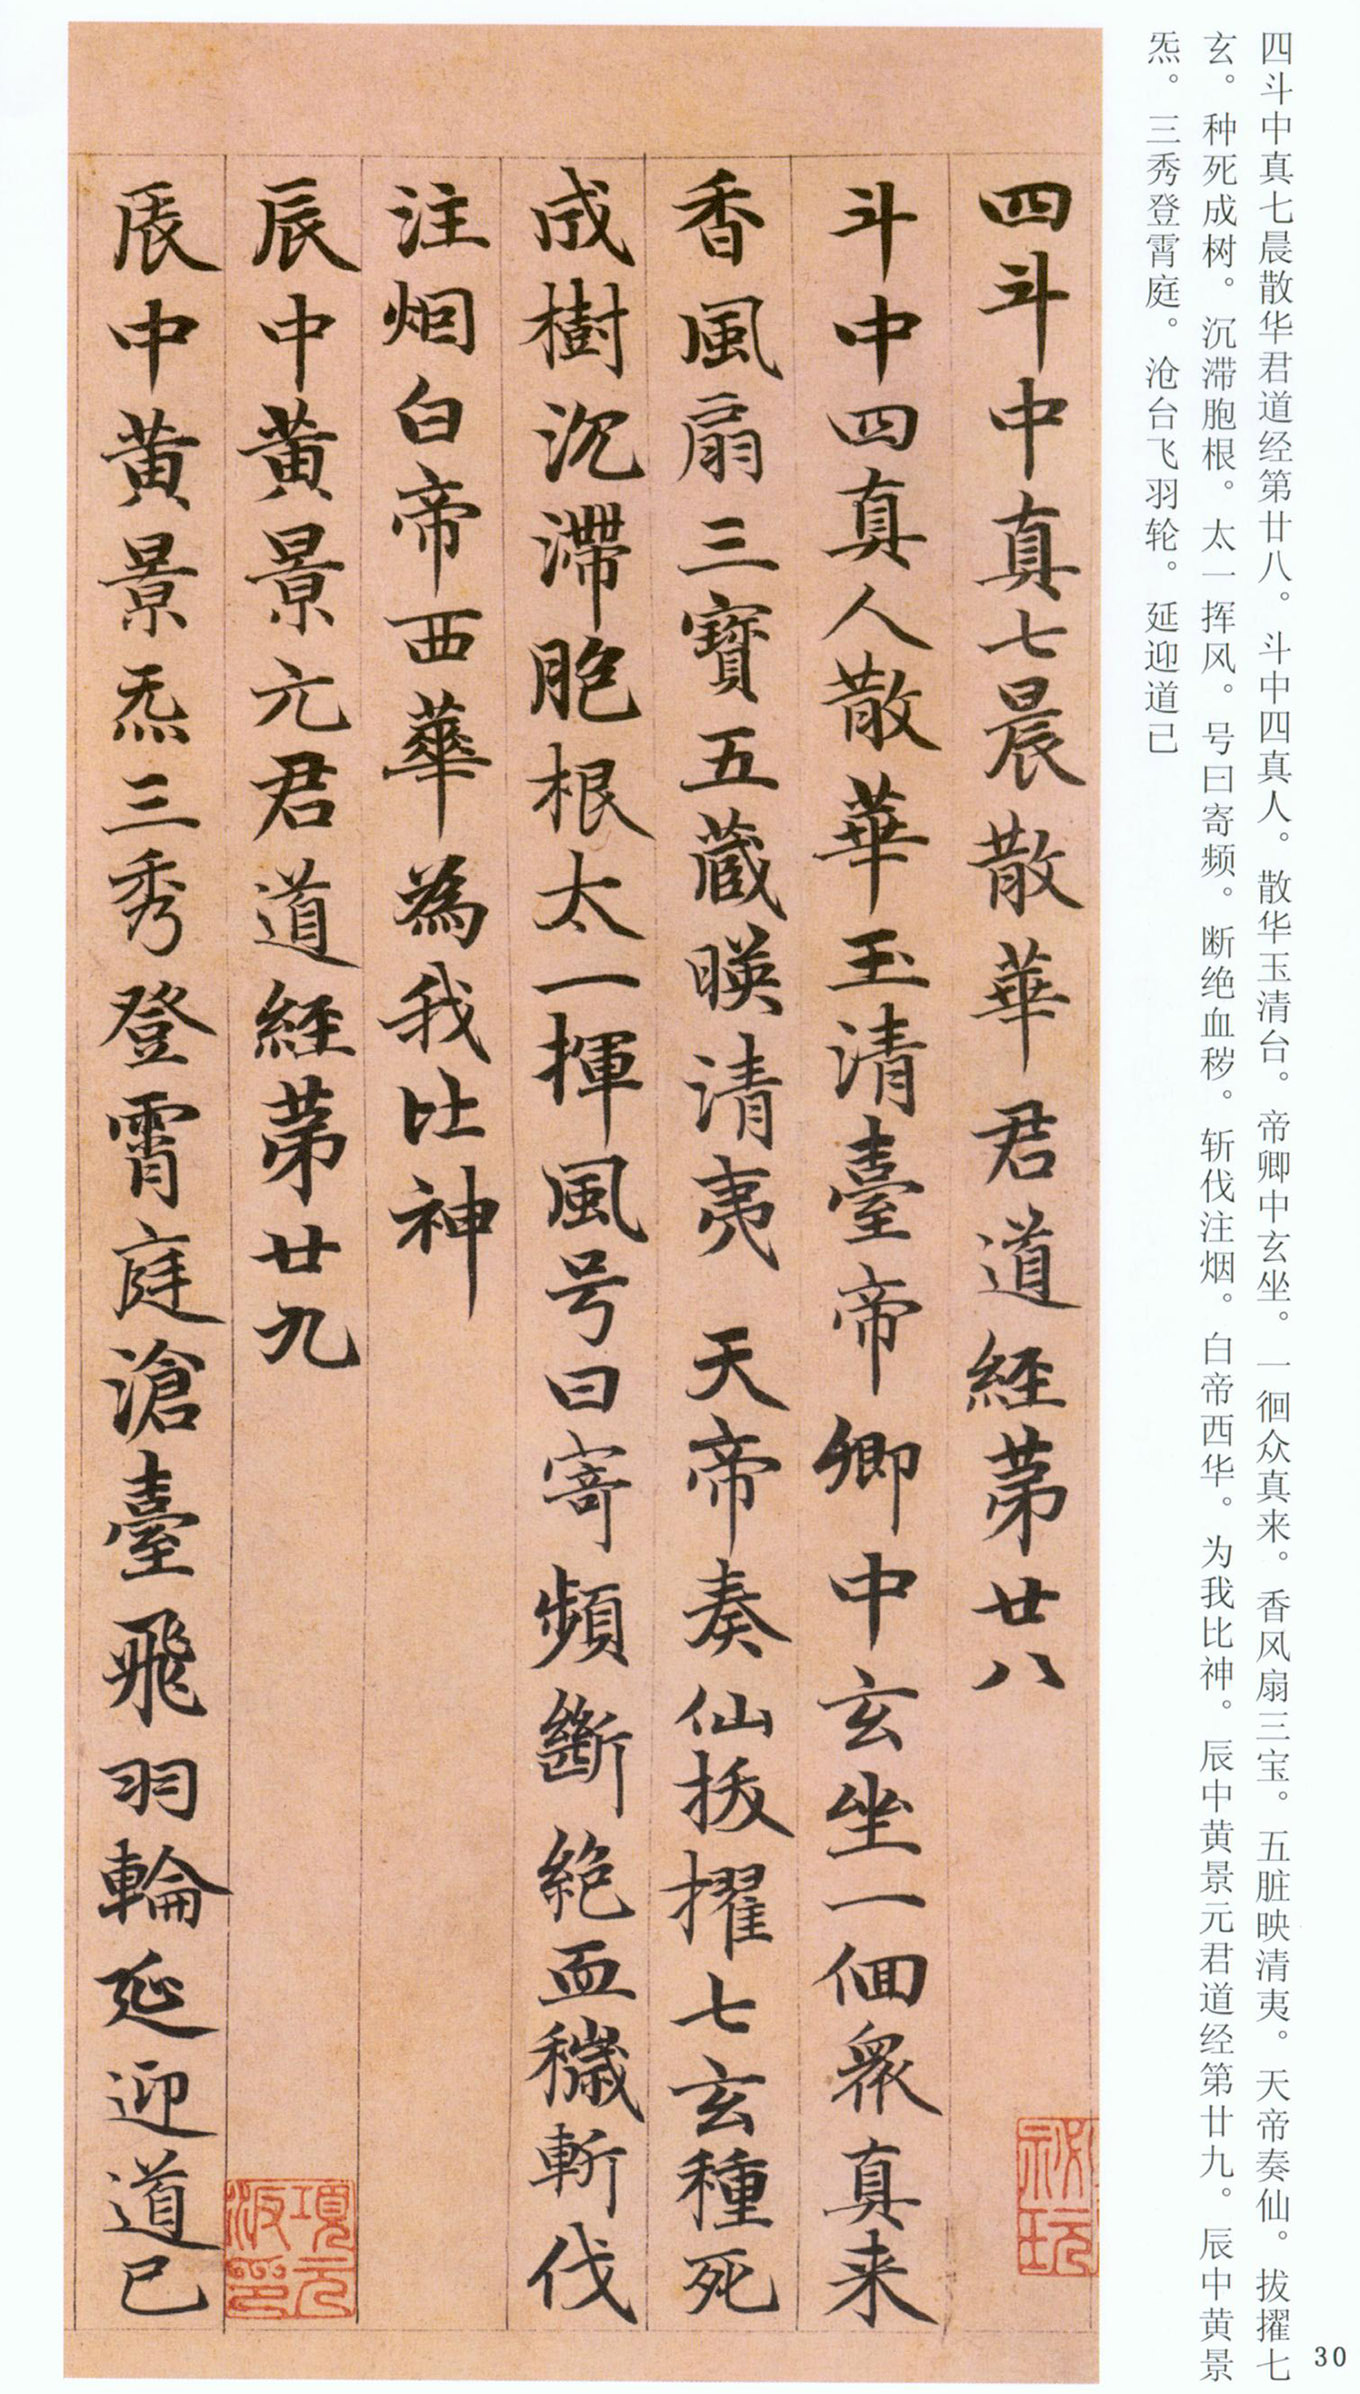 四斗中真七晨散华君道经第廿八。斗中四真人。散华玉清台。帝卿中玄坐。一徊众真来。香风扇三宝。五脏映清夷。天帝奏仙。拔擢七
玄。种死成树。沉滞胞根。太一挥风。号曰寄频。断绝血秽。斩伐注烟。白帝西华。为我比神。辰中黄景元君道经第廿九。辰中黄景
炁。三秀登霄庭。沧台飞羽轮。延迎道已
四斗中真七晨散華君道經苐廿八
斗中四真人散華玉清臺帝卿中玄坐一佪衆真来
香風扇三寶五蔵暎清夷 天帝奏仙拔擢七玄種死
成樹沉滯胞根太一揮風号曰寄頻斷絶血穢斬伐
注烟白帝西華為我比神
辰中黄景元君道經苐廿九
辰中黄景炁三秀登霄庭滄臺飛羽輪延迎道已
項元汴印
30